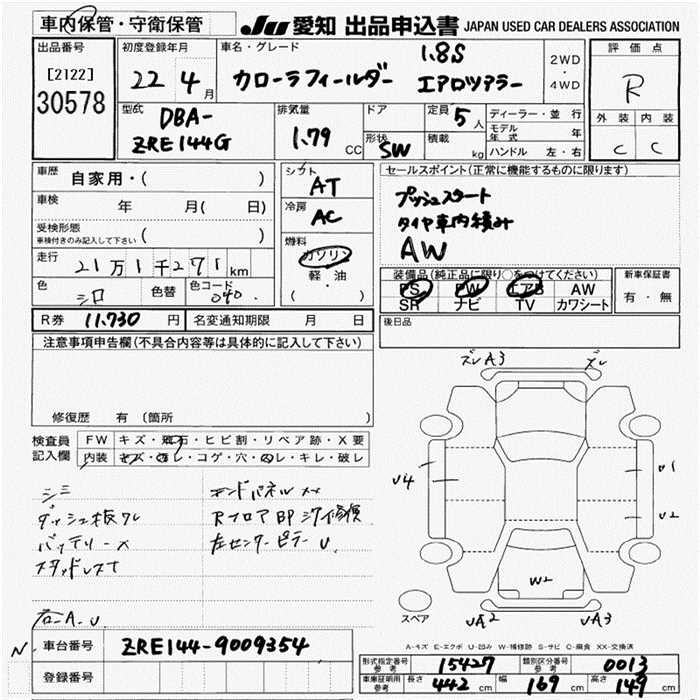 車内保管・守衛保管
JU 愛知 出品申込書 JAPAN USED CAR DEALERS ASSOCIATION
出品番号
[2122]
30578
初度登録年月
22 年 4 月
車名・グレード
カローラフィールダー
1.8S
エアロツアラー
2WD
・
4WD
評価点
R
外装 内装
C C
型式
DBA-
ZRE144G
排気量
1.79 CC
ドア
形状
SW
定員
5 人
積載
kg
ディーラー・並行
モデル年式 年
ハンドル 左・右
車歴
自家用・( )
車検
年 月( 日)
受検形態
車検付きのみ記入して下さい ( )
走行
21万1千271 km
色
シロ
色替
色コード
040
シフト
AT
冷房
AC
燃料
ガソリン
軽・油
( )
セールスポイント(正常に機能するものに限ります)
プッシュスタート
タイヤ車内積み
AW
装備品(純正品に限り○をつけてください)
PS PW エアB AW
SR ナビ TV カワシート
新車保証書
有・無
後日品
R券 11.730 円
名変通知期限 月 日
注意事項申告欄(不具合内容等は具体的に記入して下さい)
修復歴 有(箇所
検査員
記入欄
FW キズ・飛石・ヒビ割・リペア跡・X要
内装 キズ・汚レ・コゲ・穴・スレ・キレ・破レ
シミ
ダッシュ板ワレ
バッテリーX
スタッドレス
右A.U
エンドパネルXX
左センターピラーU
ズレ A3
ズレ
U4
U1
U2
W2
UA2
UA3
スペア
A-キズ E-エクボ U-凹み W-補修跡 S-サビ C-腐食 XX-交換済
N
車台番号
ZRE144-9009354
登録番号
形式指定番号
参考
15427
類別区分番号
参考
0013
車庫証明用
参考
長さ 442 cm
幅 169 cm
高さ 149 cm